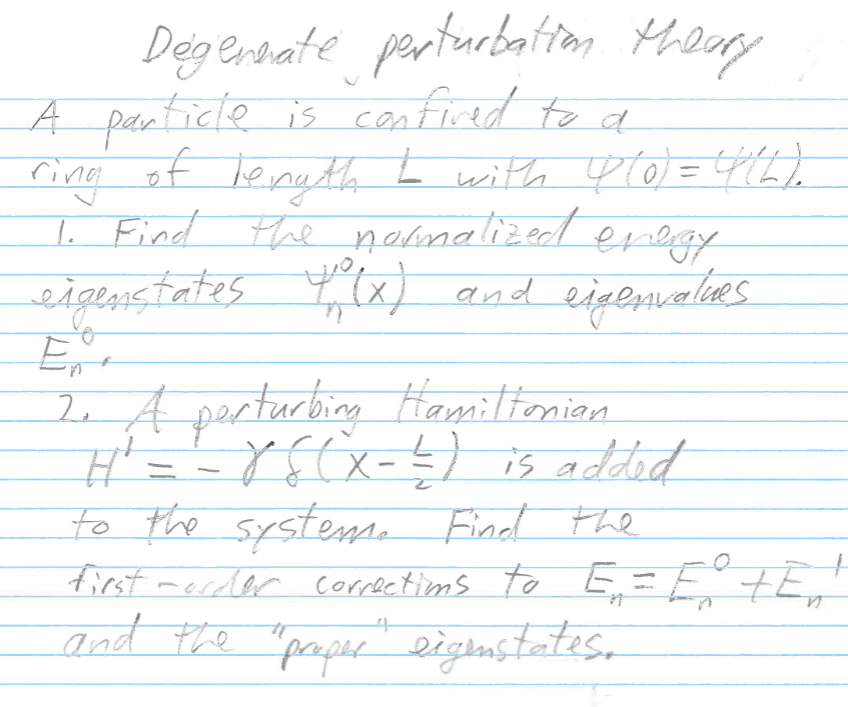 Degenerate perturbation theory
A particle is confined to a
ring of length L with ψ(0) = ψ(L).
1. Find the normalized energy
eigenstates ψₙ⁰(x) and eigenvalues
Eₙ⁰.
2. A perturbing Hamiltonian
H' = - γ δ(x - L/2) is added
to the system. Find the
first-order corrections to Eₙ = Eₙ⁰ + Eₙ¹
and the "proper" eigenstates.